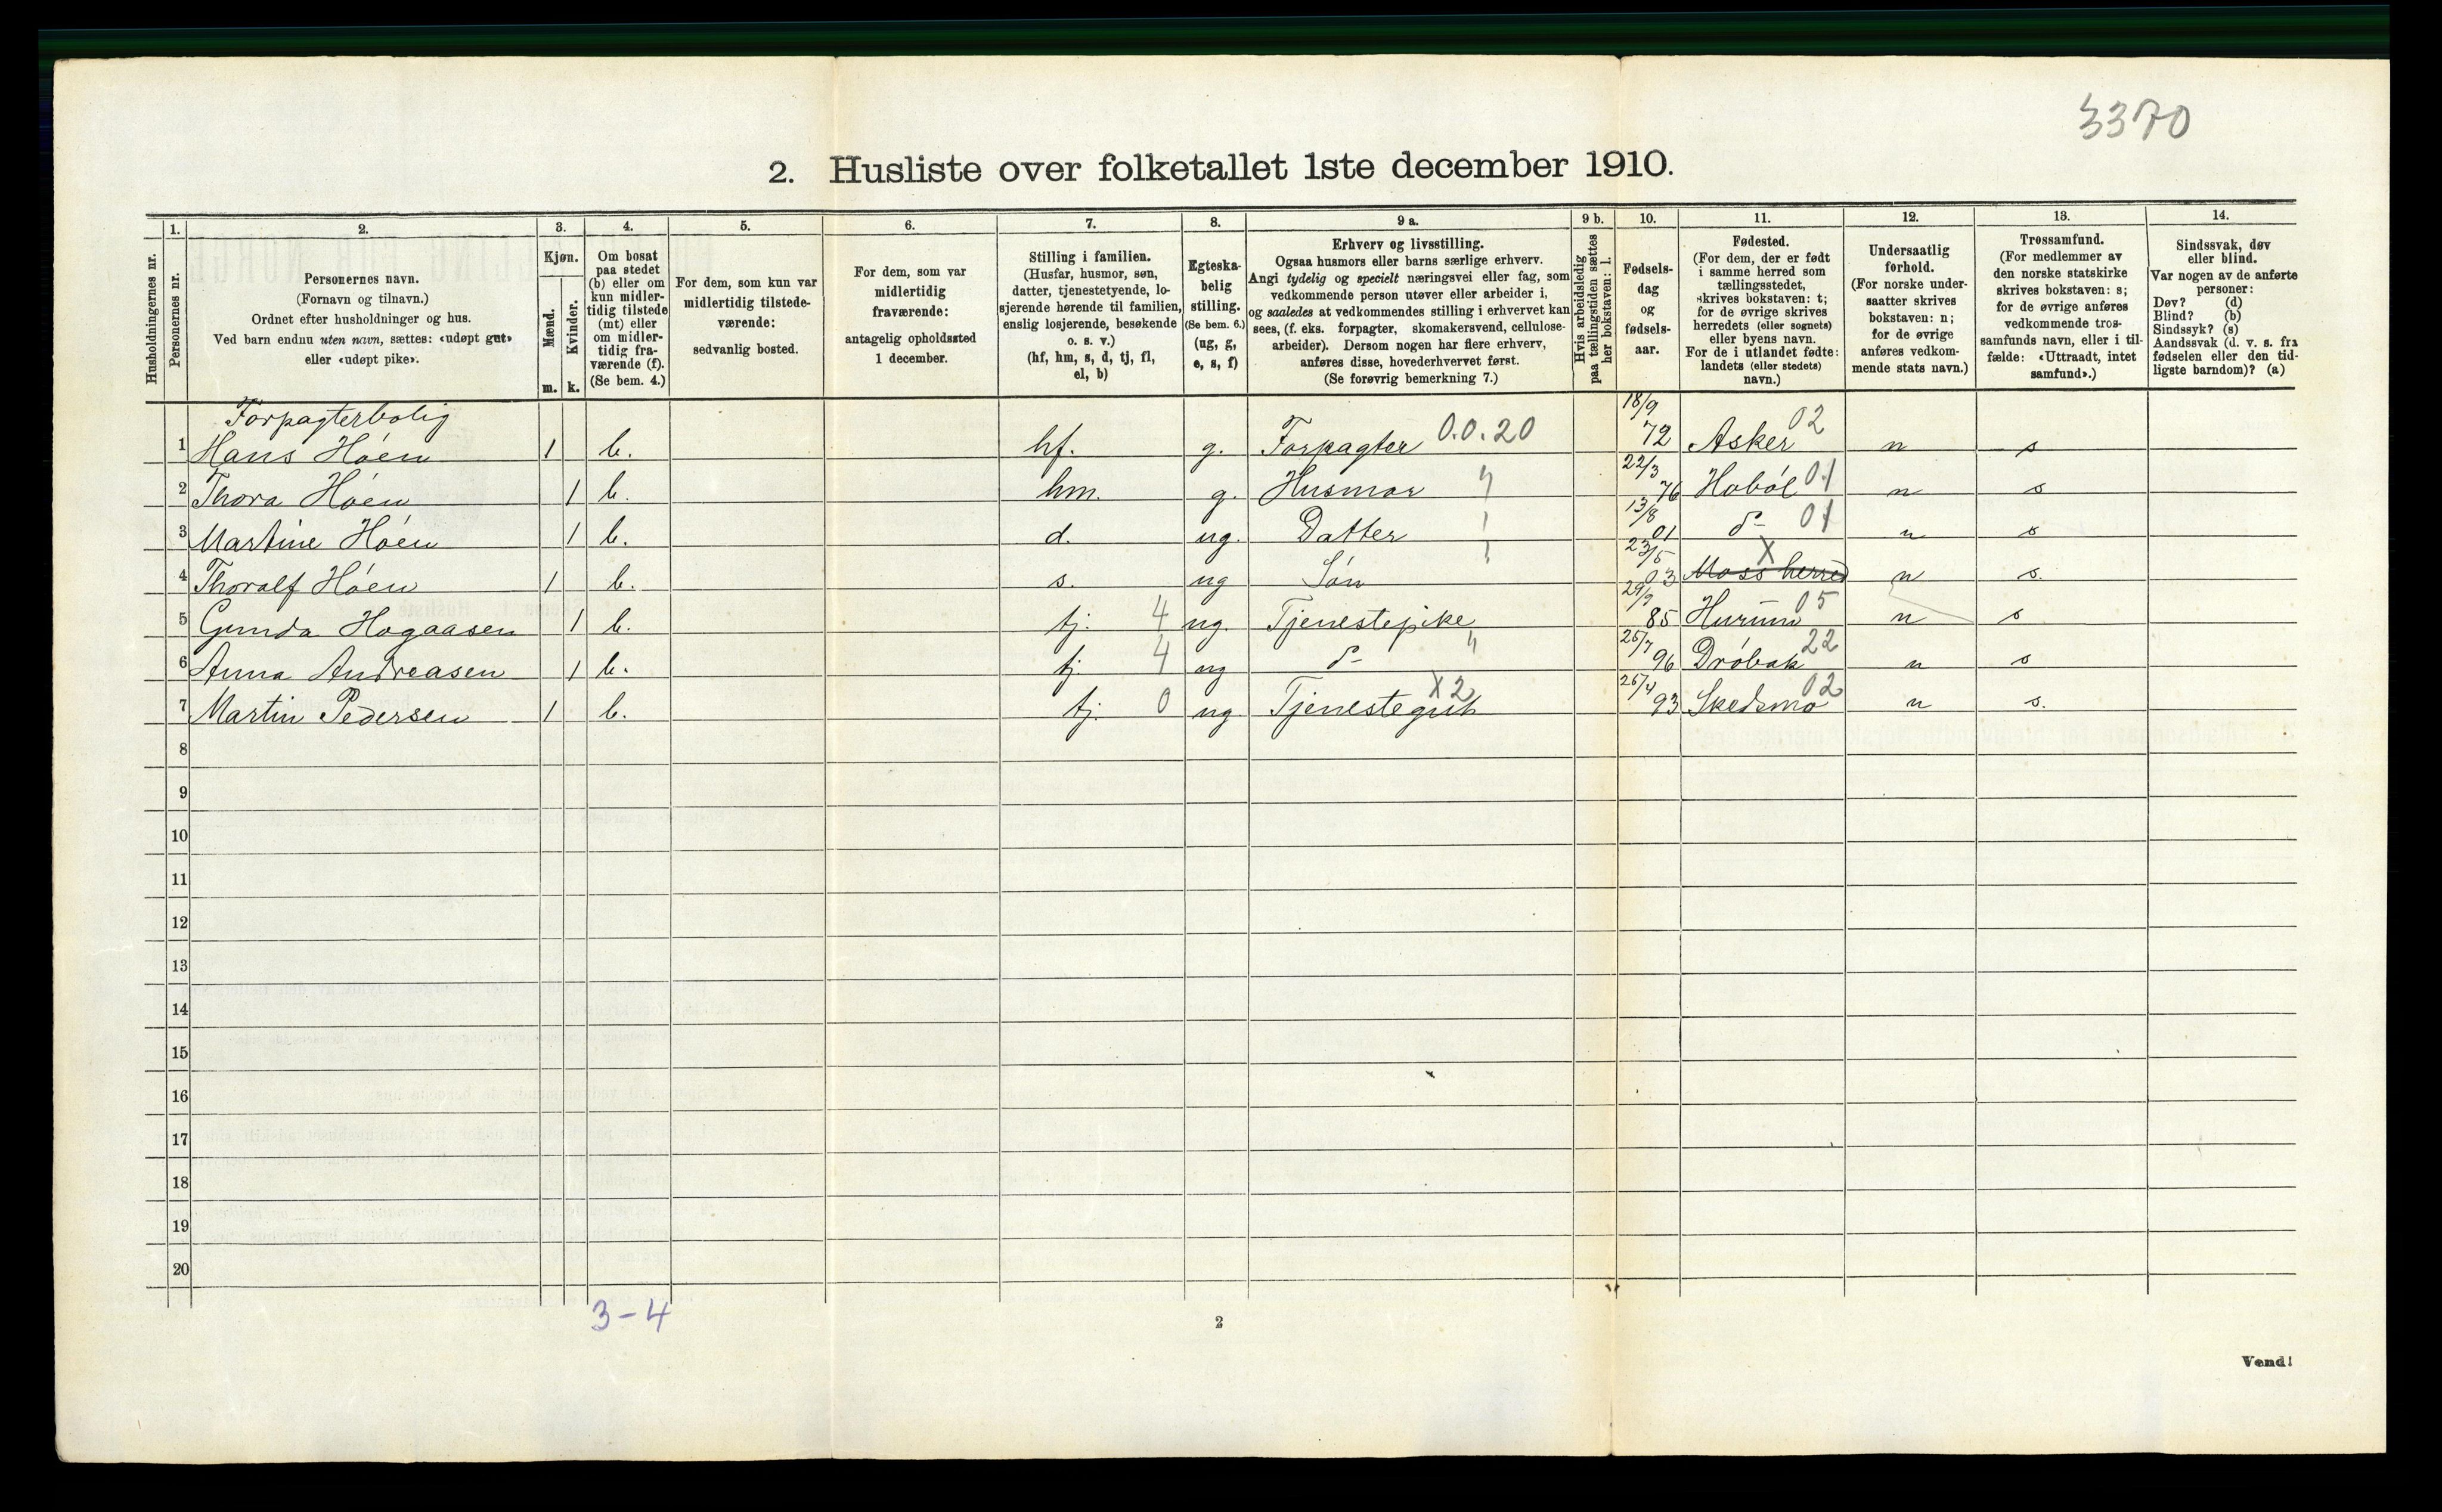 3370
2. Husliste over folketallet 1ste december 1910.
Husholdningernes nr.
1.
Personernes nr.
2.
Personernes navn.
(Fornavn og tilnavn.)
Ordnet efter husholdninger og hus.
Ved barn endnu uten navn, sættes: «udøpt gut»
eller «udøpt pike».
3.
Kjøn.
Mænd.
Kvinder.
m. k.
4.
Om bosat
paa stedet
(b) eller om
kun midler-
tidig tilstede
(mt) eller
om midler-
tidig fra-
værende (f).
(Se bem. 4.)
5.
For dem, som kun var
midlertidig tilstede-
værende:
sedvanlig bosted.
6.
For dem, som var
midlertidig
fraværende:
antagelig opholdssted
1 december.
7.
Stilling i familien.
(Husfar, husmor, søn,
datter, tjenestetyende, lo-
sjerende hørende til familien,
enslig losjerende, besøkende
o. s. v.)
(hf, hm, s, d, tj, fl,
el, b)
8.
Egteska-
belig
stilling.
(Se bem. 6.)
(ug, g,
e, s, f)
9 a.
Erhverv og livsstilling.
Ogsaa husmors eller barns særlige erhverv.
Angi tydelig og specielt næringsvei eller fag, som
vedkommende person utøver eller arbeider i,
og saaledes at vedkommendes stilling i erhvervet kan
sees, (f. eks. forpagter, skomakersvend, cellulose-
arbeider). Dersom nogen har flere erhverv,
anføres disse, hovederhvervet først.
(Se forøvrig bemerkning 7.)
9 b.
Hvis arbeidsledig
paa tællingstiden sættes
her bokstaven: l.
10.
Fødsels-
dag
og
fødsels-
aar.
11.
Fødested.
(For dem, der er født
i samme herred som
tællingsstedet,
skrives bokstaven: t;
for de øvrige skrives
herredets (eller sognets)
eller byens navn.
For de i utlandet fødte:
landets (eller stedets)
navn.)
12.
Undersaatlig
forhold.
(For norske under-
saatter skrives
bokstaven: n;
for de øvrige
anføres vedkom-
mende stats navn.)
13.
Trossamfund.
(For medlemmer av
den norske statskirke
skrives bokstaven: s;
for de øvrige anføres
vedkommende tros-
samfunds navn, eller i til-
fælde: «Uttraadt, intet
samfund».)
14.
Sindssvak, døv
eller blind.
Var nogen av de anførte
personer:
Døv? (d)
Blind? (b)
Sindssyk? (s)
Aandssvak (d. v. s. fra
fødselen eller den tid-
ligste barndom)? (a)
Forpagterbolig
1 Hans Höen 1 b. hf. g. Forpagter 0.0.20 18/9 72 Asker 02 n s
2 Thora Höen 1 b. hm. g. Husmor " 22/3 76 Haböl 01 n s
3 Martine Höen 1 b. d. ug. Datter ! 13/8 01 d- 01 n s
4 Thoralf Höen 1 b. s. ug Sön ! 23/5 03 Moss herred X n s.
5 Gunda Hogaasen 1 b. tj. 4 ug. Tjenestepike 29/9 85 Hurum 05 n s
6 Anna Andreasen 1 b. tj. 4 ug d- " 25/7 96 Dröbak 22 n s
7 Martin Pedersen 1 b. tj. 0 ug Tjenestegut X2 26/4 93 Skedsmo 02 n s.
8
9
10
11
12
13
14
15
16
17
18
19
20
3-4
2
Vend!